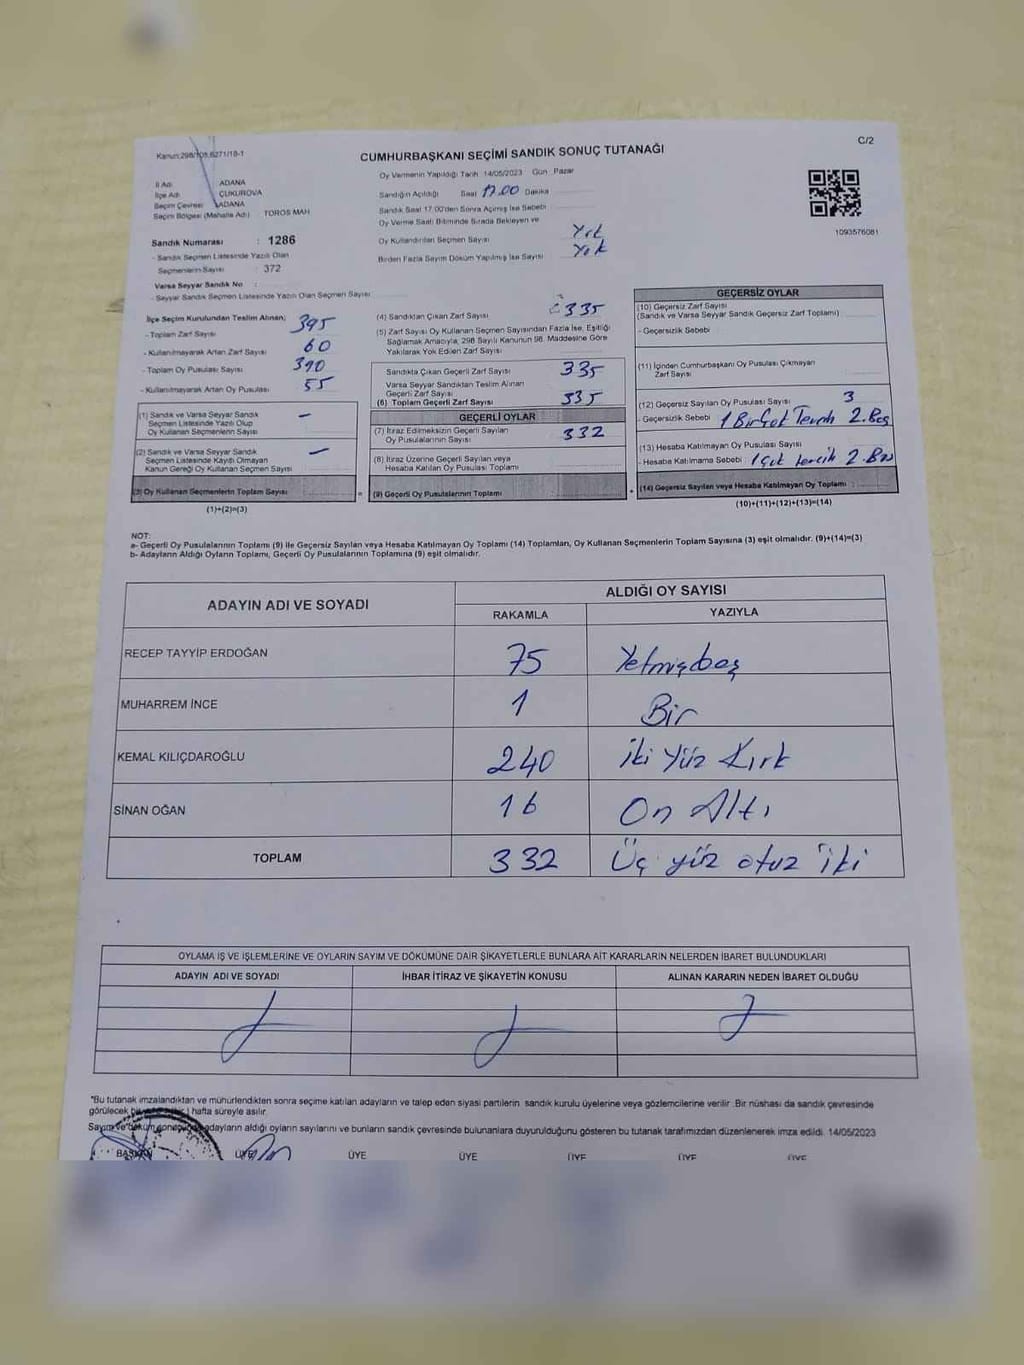 Kanun:298/105,6271/18-1
C/2
CUMHURBAŞKANI SEÇİMİ SANDIK SONUÇ TUTANAĞI
İl Adı ADANA
İlçe Adı ÇUKUROVA
Seçim Çevresi ADANA
Seçim Bölgesi (Mahalle Adı) TOROS MAH
Sandık Numarası : 1286
- Sandık Seçmen Listesinde Yazılı Olan
Seçmenlerin Sayısı : 372
Varsa Seyyar Sandık No :
- Seyyar Sandık Seçmen Listesinde Yazılı Olan Seçmen Sayısı
Oy Vermenin Yapıldığı Tarih 14/05/2023 Gün Pazar
Sandığın Açıldığı Saat 17.00 Dakika
Sandık Saat 17.00'den Sonra Açılmış İse Sebebi
Oy Verme Saati Bitiminde Sırada Bekleyen ve
Oy Kullandırılan Seçmen Sayısı Yok
Birden Fazla Sayım Döküm Yapılmış İse Sayısı Yok
1093576081
İlçe Seçim Kurulundan Teslim Alınan;
- Toplam Zarf Sayısı 395
- Kullanılmayarak Artan Zarf Sayısı 60
- Toplam Oy Pusulası Sayısı 390
- Kullanılmayarak Artan Oy Pusulası 55
(1) Sandık ve Varsa Seyyar Sandık
Seçmen Listesinde Yazılı Olup
Oy Kullanan Seçmenlerin Sayısı –
(2) Sandık ve Varsa Seyyar Sandık
Seçmen Listesinde Kayıtlı Olmayan
Kanun Gereği Oy Kullanan Seçmen Sayısı –
(3) Oy Kullanan Seçmenlerin Toplam Sayısı =
(1)+(2)=(3)
(4) Sandıktan Çıkan Zarf Sayısı 335
(5) Zarf Sayısı Oy Kullanan Seçmen Sayısından Fazla İse, Eşitliği
Sağlamak Amacıyla, 298 Sayılı Kanunun 98. Maddesine Göre
Yakılarak Yok Edilen Zarf Sayısı
Sandıkta Çıkan Geçerli Zarf Sayısı 335
Varsa Seyyar Sandıktan Teslim Alınan
Geçerli Zarf Sayısı
(6) Toplam Geçerli Zarf Sayısı 335
GEÇERLİ OYLAR
(7) İtiraz Edilmeksizin Geçerli Sayılan
Oy Pusulalarının Sayısı 332
(8) İtiraz Üzerine Geçerli Sayılan veya
Hesaba Katılan Oy Pusulası Toplamı
(9) Geçerli Oy Pusulalarının Toplamı +
GEÇERSİZ OYLAR
(10) Geçersiz Zarf Sayısı
(Sandık ve Varsa Seyyar Sandık Geçersiz Zarf Toplamı)
- Geçersizlik Sebebi
(11) İçinden Cumhurbaşkanı Oy Pusulası Çıkmayan
Zarf Sayısı
(12) Geçersiz Sayılan Oy Pusulası Sayısı 3
- Geçersizlik Sebebi 1 Birçok Tercih 2.Boş
(13) Hesaba Katılmayan Oy Pusulası Sayısı
- Hesaba Katılmama Sebebi 1 Çok tercih 2.Boş
(14) Geçersiz Sayılan veya Hesaba Katılmayan Oy Toplamı :
(10)+(11)+(12)+(13)=(14)
NOT:
a- Geçerli Oy Pusulalarının Toplamı (9) ile Geçersiz Sayılan veya Hesaba Katılmayan Oy Toplamı (14) Toplamları, Oy Kullanan Seçmenlerin Toplam Sayısına (3) eşit olmalıdır. (9)+(14)=(3)
b- Adayların Aldığı Oyların Toplamı, Geçerli Oy Pusulalarının Toplamına (9) eşit olmalıdır.
ADAYIN ADI VE SOYADI
ALDIĞI OY SAYISI
RAKAMLA YAZIYLA
RECEP TAYYİP ERDOĞAN 75 Yetmişbeş
MUHARREM İNCE 1 Bir
KEMAL KILIÇDAROĞLU 240 İki Yüz Kırk
SİNAN OĞAN 16 On Altı
TOPLAM 332 Üç yüz otuz iki
OYLAMA İŞ VE İŞLEMLERİNE VE OYLARIN SAYIM VE DÖKÜMÜNE DAİR ŞİKAYETLERLE BUNLARA AİT KARARLARIN NELERDEN İBARET BULUNDUKLARI
ADAYIN ADI VE SOYADI İHBAR İTİRAZ VE ŞİKAYETİN KONUSU ALINAN KARARIN NEDEN İBARET OLDUĞU
"Bu tutanak imzalandıktan ve mühürlendikten sonra seçime katılan adayların ve talep eden siyasi partilerin sandık kurulu üyelerine veya gözlemcilerine verilir. Bir nüshası da sandık çevresinde
görülecek bir hafta süreyle asılır.
Sayım ve döküm sonucunda adayların aldığı oyların sayılarını ve bunların sandık çevresinde bulunanlara duyurulduğunu gösteren bu tutanak tarafımızdan düzenlenerek imza edildi. 14/05/2023
BAŞKAN ÜYE ÜYE ÜYE ÜYE ÜYE ÜYE